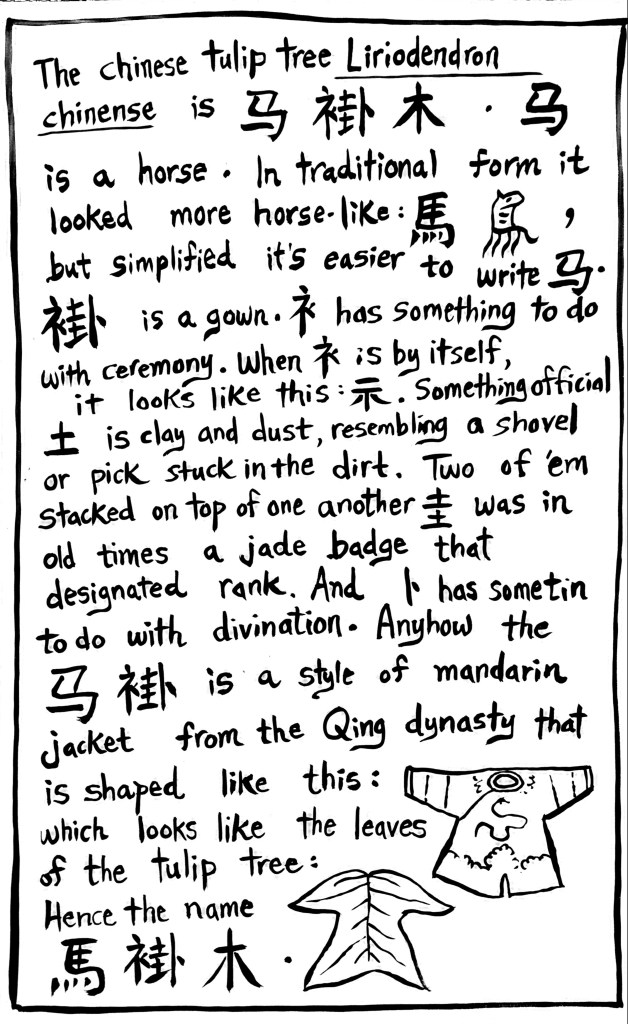 The chinese tulip tree Liriodendron
chinense is 马 褂 木 · 马
is a horse. In traditional form it
looked more horse-like: 馬 ,
but simplified it's easier to write 马.
褂 is a gown. 衤 has something to do
with ceremony. When 衤 is by itself,
it looks like this: 示. Something official
土 is clay and dust, resembling a shovel
or pick stuck in the dirt. Two of 'em
stacked on top of one another 圭 was in
old times a jade badge that
designated rank. And 卜 has sometin
to do with divination. Anyhow the
马 褂 is a style of mandarin
jacket from the Qing dynasty that
is shaped like this:
which looks like the leaves
of the tulip tree:
Hence the name
馬 褂 木 .